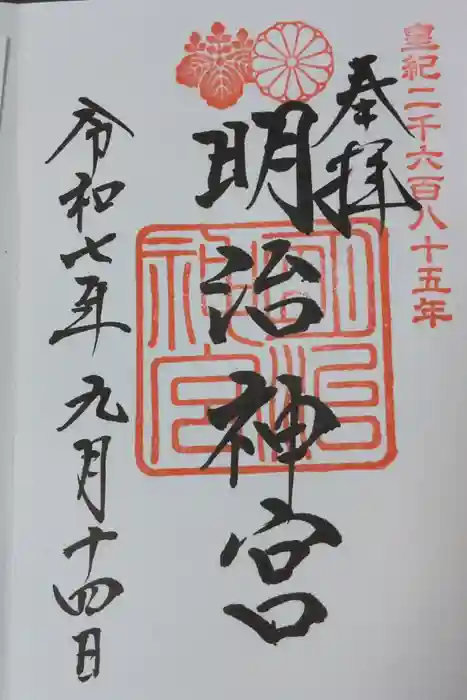 皇紀二千六百八十五年
奉拝
明治神宮
明治神宮
令和七年九月十四日